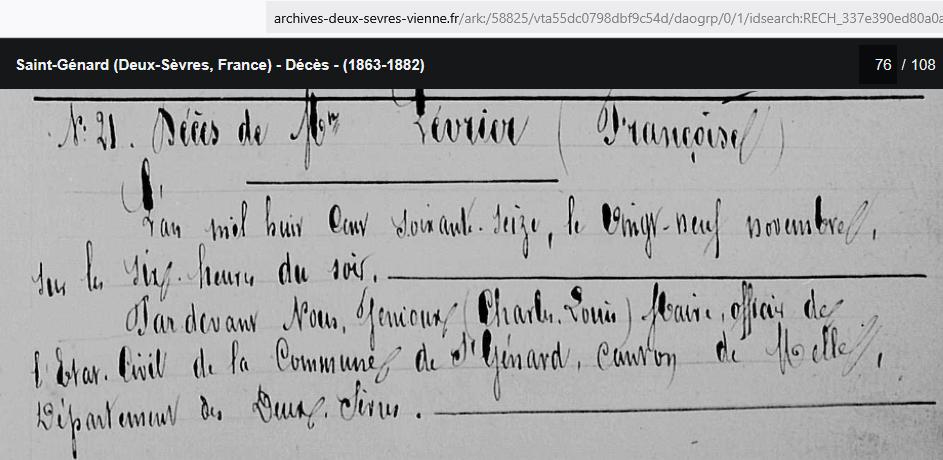 archives-deux-sevres-vienne.fr/ark:/58825/vta55dc0798dbf9c54d/daogrp/0/1/idsearch:RECH_337e390ed80a0a
Saint-Génard (Deux-Sèvres, France) - Décès - (1863-1882)
76 / 108
N° 21. Décès de Lévrier (Françoise)
L'an mil huit cent soixante-seize, le vingt-neuf novembre,
sur les six heures du soir.
Par devant Nous, Genioux (Charles-Louis) Maire, officier de
l'Etat-Civil de la Commune de St Génard, canton de Melle,
Département des Deux-Sèvres.